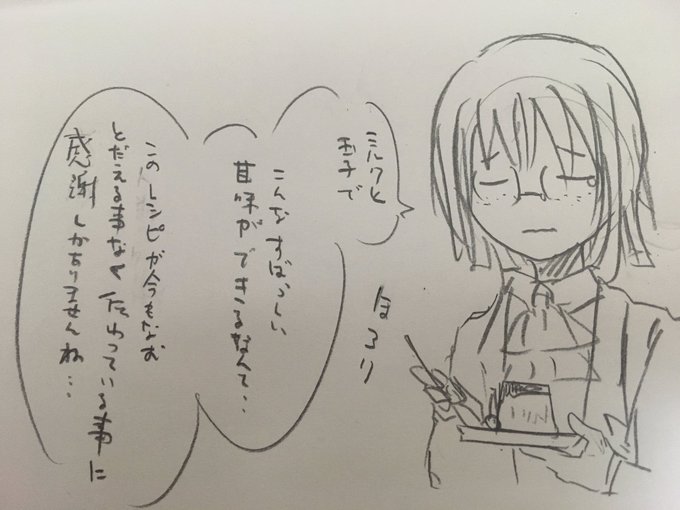 ミルクと
玉子で
こんなすばらしい
甘味ができるなんて‥
このレシピが今もなお
とだえる事なく伝わっている事に
感謝しかありませんね‥
ほろり